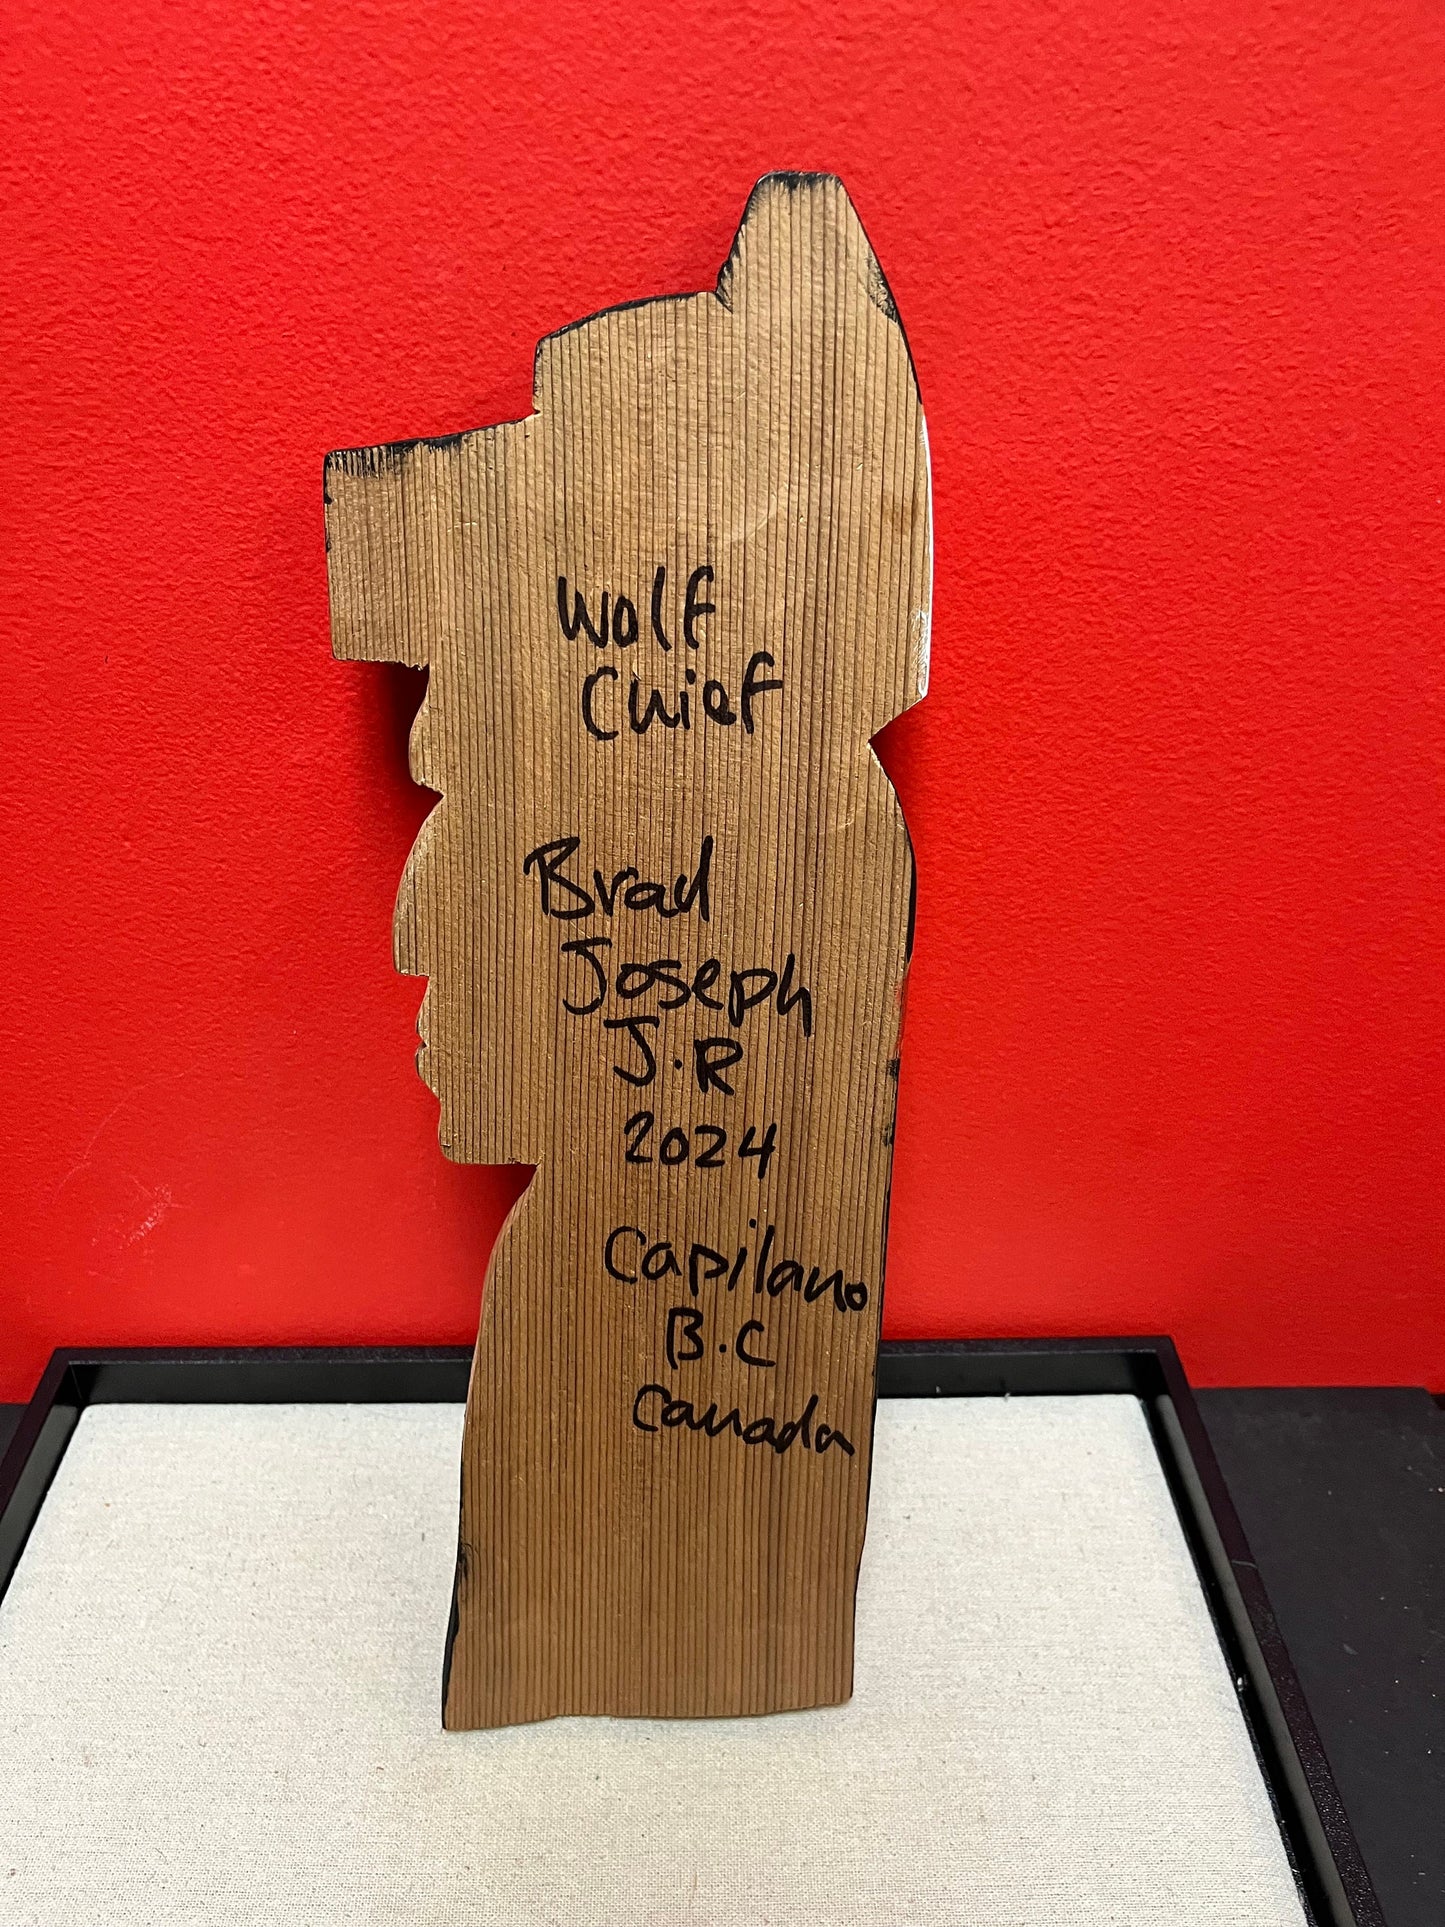 Wolf
Chief
Brad
Joseph
J.R
2024
Capilano
B.C
Canada